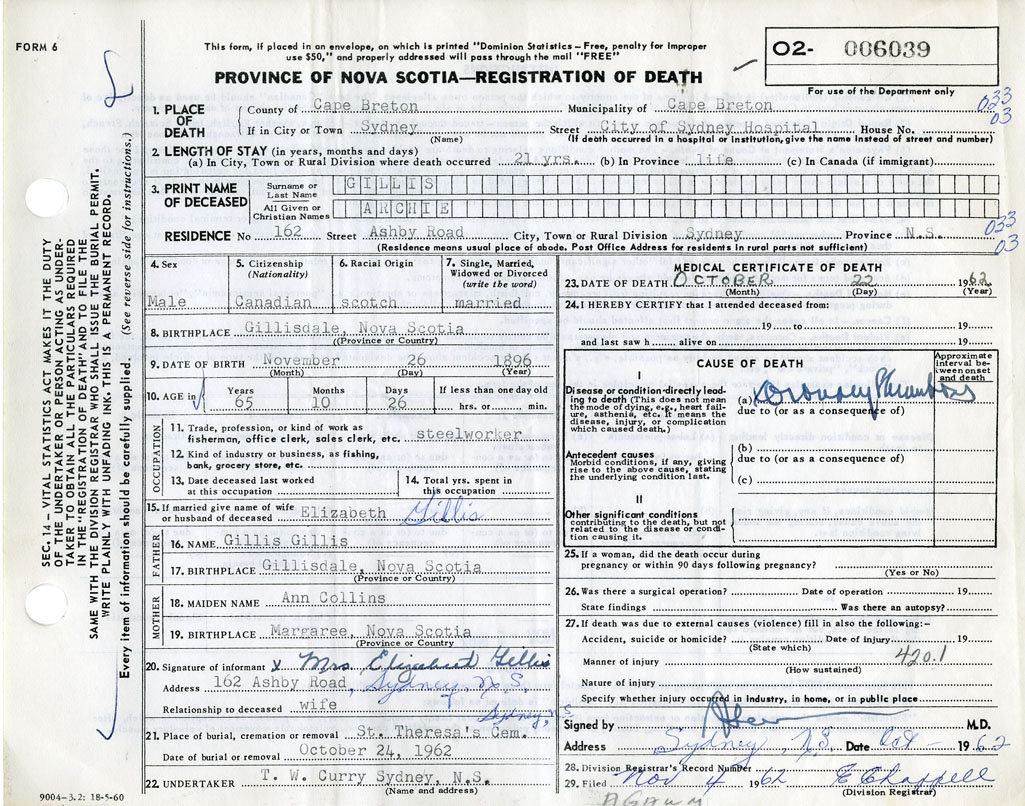 FORM 6
This form, if placed in an envelope, on which is printed "Dominion Statistics – Free, penalty for improper
use $50," and properly addressed will pass through the mail "FREE"
PROVINCE OF NOVA SCOTIA—REGISTRATION OF DEATH
02- 006039
For use of the Department only
033
03
1. PLACE OF DEATH
County of Cape Breton Municipality of Cape Breton
If in City or Town Sydney Street City of Sydney Hospital House No.
(Name) (If death occurred in hospital or institution, give the name instead of street and number)
2. LENGTH OF STAY (in years, months and days)
(a) In City, Town or Rural Division where death occurred 21 yrs. (b) In Province life (c) In Canada (if immigrant)
3. PRINT NAME OF DECEASED
Surname or Last Name GILLIS
All Given or Christian Names ARCHIE
RESIDENCE No 162 Street Ashby Road City, Town or Rural Division Sydney Province N.S.
(Residence means usual place of abode. Post Office Address for residents in rural parts not sufficient)
033
03
4. Sex
Male
5. Citizenship (Nationality)
Canadian
6. Racial Origin
scotch
7. Single, Married, Widowed or Divorced (write the word)
married
8. BIRTHPLACE Gillisdale, Nova Scotia
(Province or Country)
9. DATE OF BIRTH November 26 1896
(Month) (Day) (Year)
10. AGE in Years 65 Months 10 Days 26 If less than one day old
hrs. or min.
OCCUPATION
11. Trade, profession, or kind of work as
fisherman, office clerk, sales clerk, etc. steelworker
12. Kind of industry or business, as fishing,
bank, grocery store, etc.
13. Date deceased last worked
at this occupation
14. Total yrs. spent in
this occupation
15. If married give name of wife
or husband of deceased Elizabeth Gillis
FATHER
16. NAME Gillis Gillis
17. BIRTHPLACE Gillisdale, Nova Scotia
(Province or Country)
MOTHER
18. MAIDEN NAME Ann Collins
19. BIRTHPLACE Margaree, Nova Scotia
(Province or Country)
20. Signature of informant x Mrs. Elizabeth Gillis
Address 162 Ashby Road, Sydney, N.S.
Relationship to deceased wife
Sydney, N.S
21. Place of burial, cremation or removal St. Theresa's Cem.
Date of burial or removal October 24, 1962
22. UNDERTAKER T. W. Curry Sydney, N.S.
(Name and address)
9004–3.2: 18-5-60
MEDICAL CERTIFICATE OF DEATH
23. DATE OF DEATH OCTOBER 22 1962
(Month) (Day) (Year)
24. I HEREBY CERTIFY that I attended deceased from:
19 to 19
and last saw h alive on 19
CAUSE OF DEATH
Approximate interval between onset and death
I
Disease or condition directly leading to death (This does not mean
the mode of dying, e.g., heart failure, asthenia, etc. It means the
disease, injury, or complication
which caused death.)
(a) Coronary Thrombosis
due to (or as a consequence of)
Antecedent causes
Morbid conditions, if any, giving
rise to the above cause, stating
the underlying condition last.
(b)
due to (or as a consequence of)
(c)
II
Other significant conditions
contributing to the death, but not
related to the disease or condition causing it.
25. If a woman, did the death occur during
pregnancy or within 90 days following pregnancy?
(Yes or No)
26. Was there a surgical operation? Date of operation 19
State findings Was there an autopsy?
27. If death was due to external causes (violence) fill in also the following:–
Accident, suicide or homicide? Date of injury 19
(State which)
420.1
Manner of injury
(How sustained)
Nature of injury
Specify whether injury occurred in industry, in home, or in public place
Signed by M.D.
Address Sydney, N.S. Date Oct – 1962
28. Division Registrar's Record Number
29. Filed Nov 4 1962 E Chappell
(Division Registrar)
SEC. 14 – VITAL STATISTICS ACT MAKES IT THE DUTY
OF THE UNDERTAKER OR PERSON ACTING AS UNDERTAKER TO OBTAIN ALL THE PARTICULARS REQUIRED
IN THE "REGISTRATION OF DEATH" AND TO FILE THE
SAME WITH THE DIVISION REGISTRAR WHO SHALL ISSUE THE BURIAL PERMIT.
WRITE PLAINLY WITH UNFADING INK. THIS IS A PERMANENT RECORD.
Every item of information should be carefully supplied. (See reverse side for instructions.)